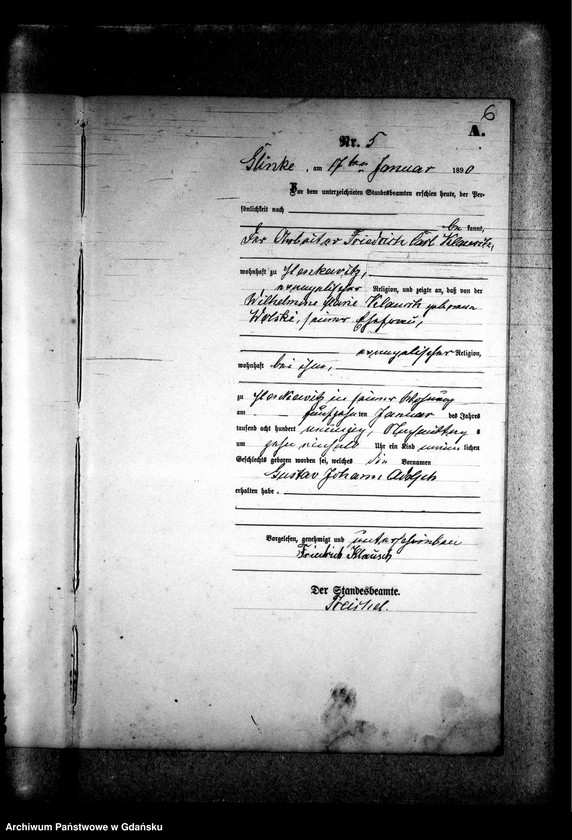 6
A.
Nr. 5
Glinke, am 17ten Januar 1890
Vor dem unterzeichneten Standesbeamten erschien heute, der Per-
sönlichkeit nach
be kannt,
Der Arbeiter Friedrich Carl
wohnhaft zu
evangelischer Religion, und zeigte an, daß von der
Wilhelmine Marie geborene
seiner Ehefrau,
evangelischer Religion,
wohnhaft bei ihm,
zu in seiner Wohnung
am fünfzehnten Januar des Jahres
tausend acht hundert neunzig, Nachmittag s
um zehn einhalb Uhr ein Kind männ lichen
Geschlechts geboren worden sei, welches die Vornamen
Gustav Johann Adolph
erhalten habe.
Vorgelesen, genehmigt und unterschrieben
Friedrich
Der Standesbeamte.
Archiwum Państwowe w Gdańsku